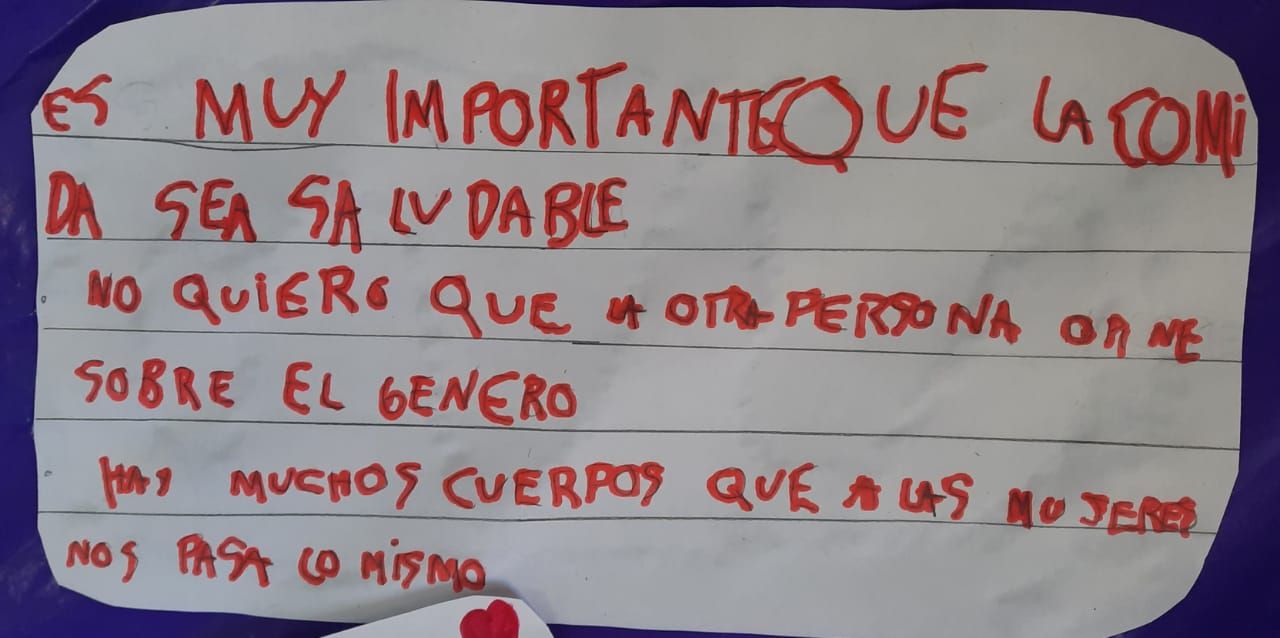 ES MUY IMPORTANTE QUE LA COMI
DA SEA SALUDABLE
NO QUIERO QUE LA OTRA PERSONA OPINE
SOBRE EL GENERO
HAY MUCHOS CUERPOS QUE A LAS MUJERES
NOS PASA LO MISMO